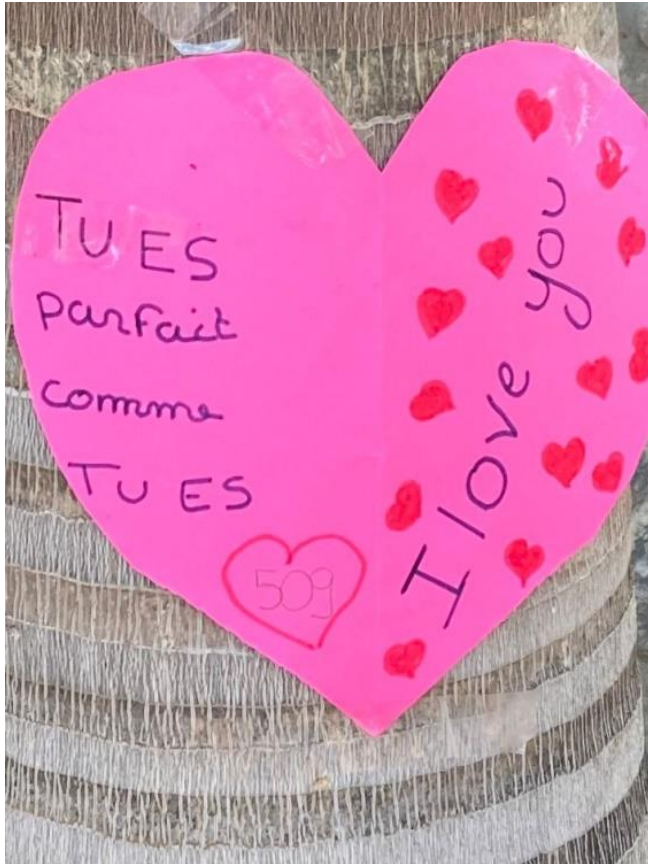 TU ES
parfait
comme
TU ES
509
I love you